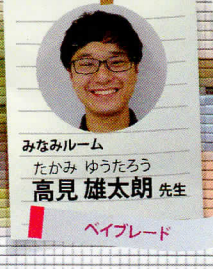 みなみルーム
たかみ ゆうたろう
高見 雄太朗 先生
ベイブレード